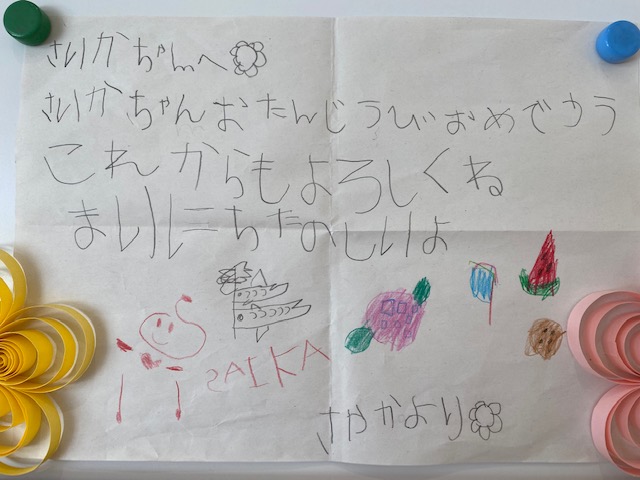 さいかちゃんへ
さいかちゃんおたんじうびおめでとう
これからもよろしくね
まいにちたのしいよ
SAIKA
さやかより